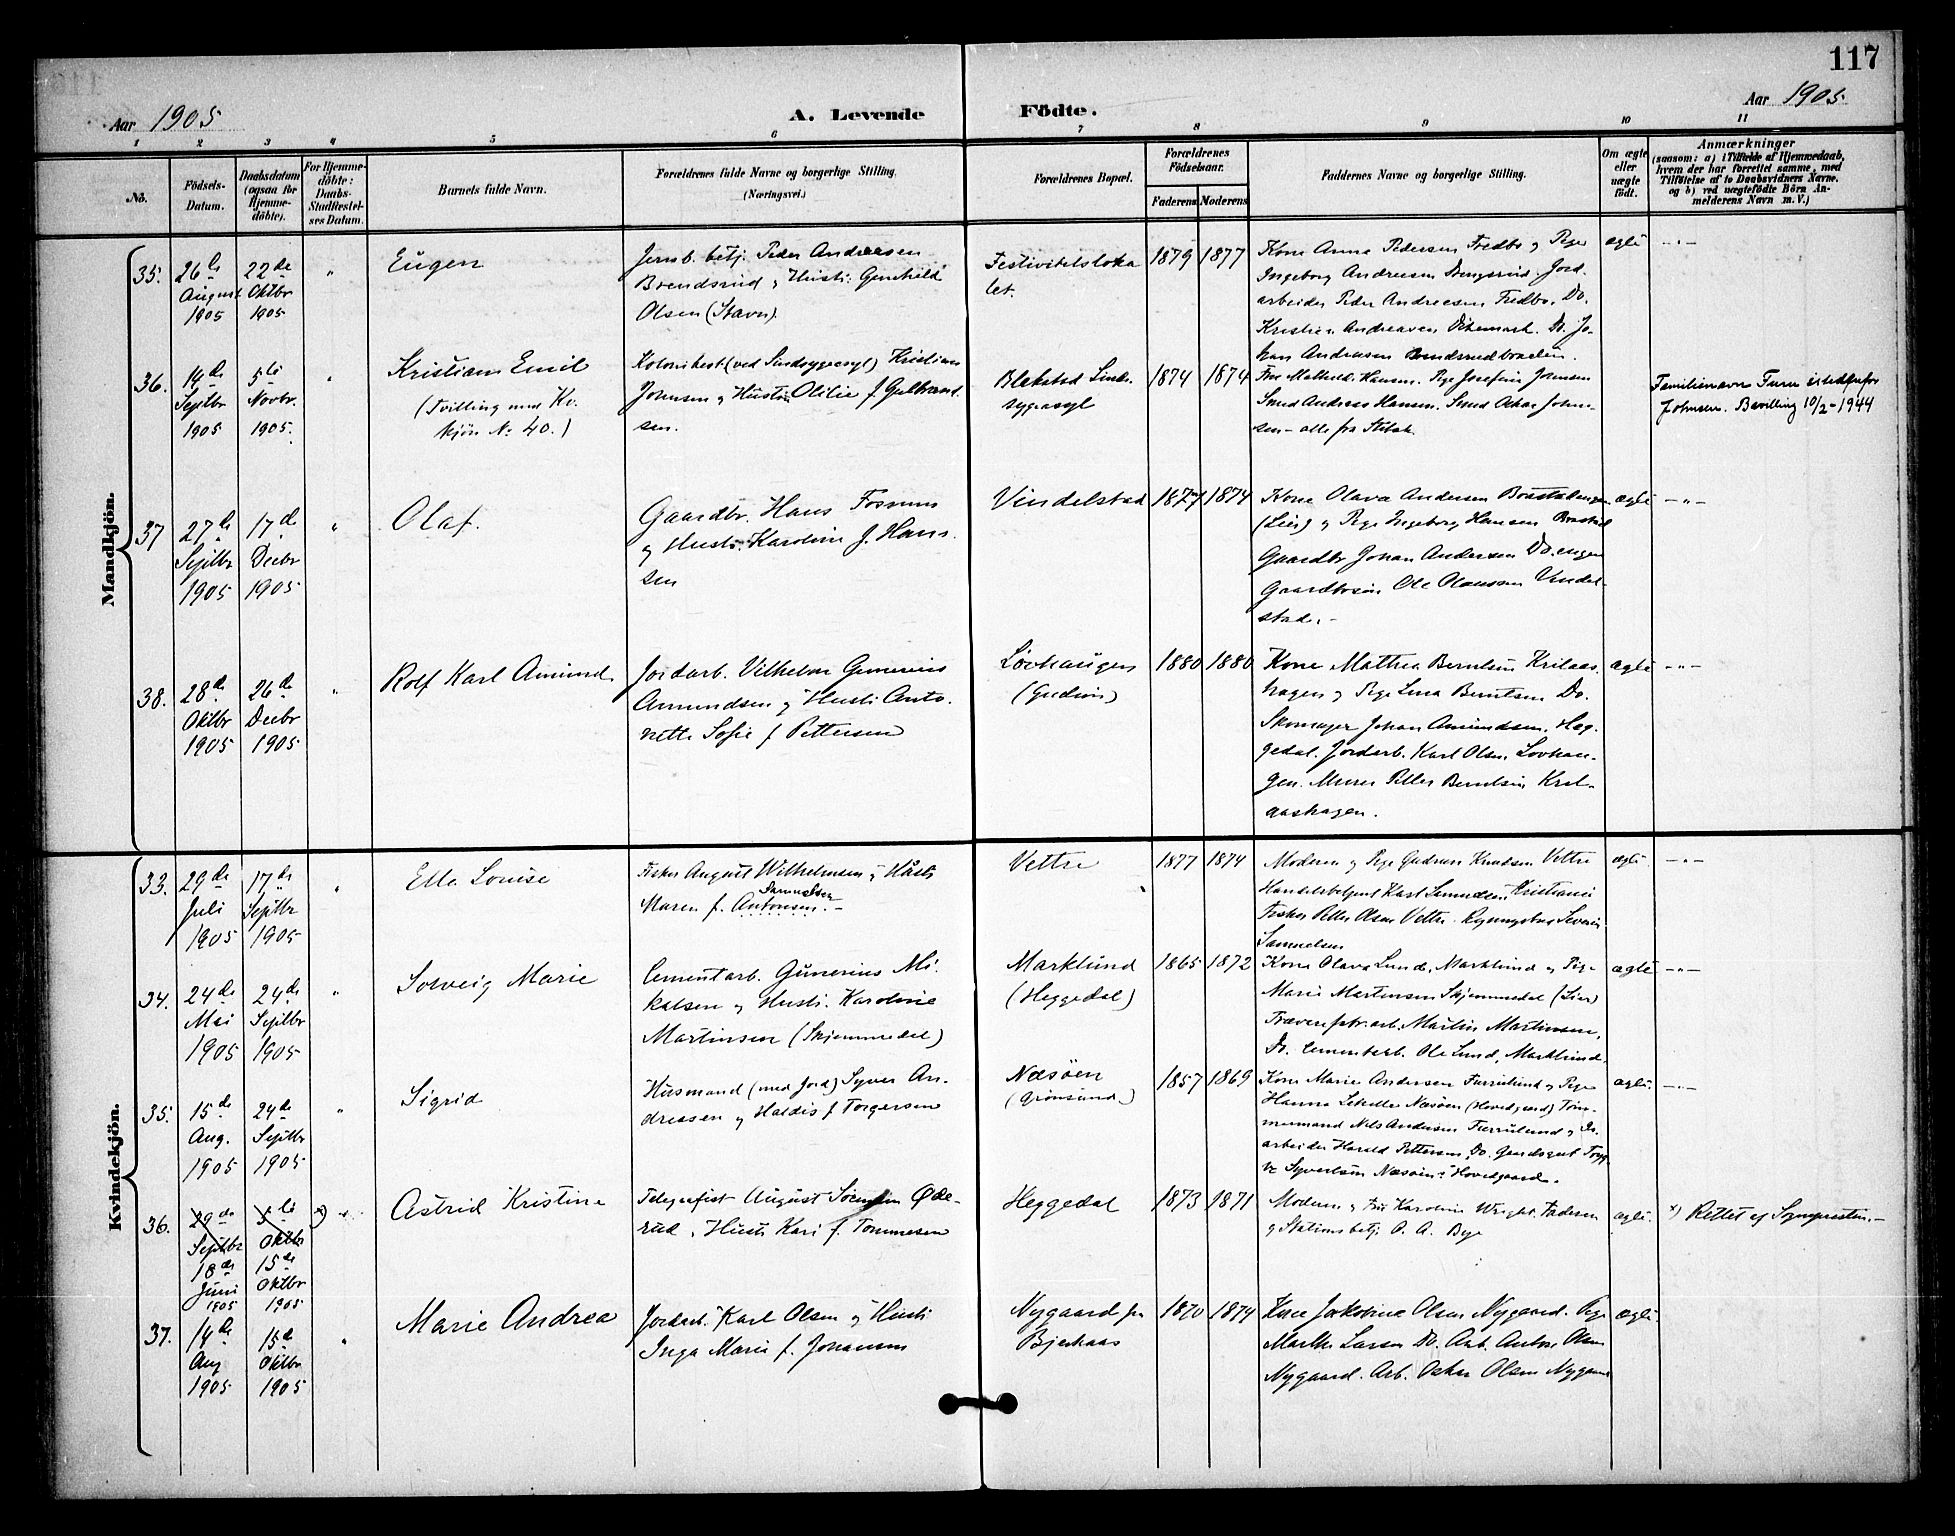 117
Aar 1905
A. Levende Födte.
Aar 1905
1 2 3 4 5 6 7 8 9 10 11
No.
Födsels-
Datum.
Daabsdatum
(ogsaa for
Hjemme-
döbte).
For Hjemme-
döbte:
Daabs-
Stadfæstel-
ses Datum.
Barnets fulde Navn.
Forældrenes fulde Navne og borgerlige Stilling.
(Næringsvei.)
Forældrenes Bopæl.
Forældrenes
Födselsaar.
Faderens Moderens
Faddernes Navne og borgerlige Stilling.
Om ægte
eller
uægte
födt.
Anmærkninger
(saasom: a) i Tilfælde af Hjemmedaab,
hvem der har forrettet samme, med
Tilföielse af to Daabsvidners Navne.
og b) ved uægtefödte Börn An-
melderens Navn m. V.)
Mandkjön.
35.
26de
August
1905
22de
Oktbr
1905
"
Eugen
Jernb. betj. Peder Andreesen
Brendsrud og Hustr: Gunhild
Olsen (Stavn).
Festivitetsloka
let.
1879
1877
Kone Anna Pedersen Fredbo og Pige
Ingeborg Andreesen Jord
arbeider Peder Andreesen Fredbo. Do.
Kristian Andreasen Dikemark. Do. Jo-
han Andreasen
ægte
-"-
36.
14de
Septbr
1905
5te
Novbr.
1905.
"
Kristian Emil
(Tvilling med Kv.
kjön No 40.)
(ved Sindsygeasyl) Kristian
Johnsen og Hustru Otilie f. Gulbrand-
sen.
Blakstad Sinds-
sygeasyl
1874
1874
Fru Mathilde Hansen. Pige Josefine Johnsen
Smed Andreas Hansen. Smed Oskar John-
sen - alle fra
Familienavn Furu istedenfor
Johnsen. Bevilling 10/2-1944
37
27de
Septbr
1905
17de
Decbr
1905
"
Olaf.
Gaardbr. Hans Fossum
og Hustr. Karoline f. Han-
sen
Vindelstad
1877
1874
Kone Olava Andersen
(Lier) og Pige Ingeborg Hansen
Gaardbr Johan Andersen Do. engen
Gaardbrsön Ole Olaussen Vindel-
stad. -
ægte
-"-
38.
28de
Oktbr
1905
26de
Decbr
1905
"
Rolf Karl Amund.
Jordarb. Vilhelm Gunerius
Amundsen og Hustr: Anto-
nette Sofie f Pettersen
Lövhaugen
(Gudim)
1880
1880
Kone Mathea Berntsen Krilaas-
hagen og Pige Lina Berntsen Do.
Skomager Johan Amundsen, Heg-
gedal. Jordarb. Karl Olsen Lövhau-
gen. Murer Petter Berntsen Kril-
aashagen.
ægte
-"-
Kvindekjön.
33.
29de
Juli
1905
17de
Septbr
1905
"
Ella Louise
Fisker August Wilhelmsen og Hustr
Samuelsen
Maren f. Antonsen. -
Vettre
1877
1874
Moderen og Pige Gudrun Knudsen Vettre
Handelsbetjent Karl Kristiania
Fisker Petter Olsen Vettre. Severin
Samuelsen
ægte.
-"-
34.
24de
Mai
1905
24de
Septbr
1905
"
Solveig Marie
Cementarb. Gunerius Mi-
kalsen og Hustr. Karoline
Martinsen (Skjemmedal)
Marklund
(Heggedal)
1865
1872
Kone Olava Lund, Marklund og Pige
Marie Martensen Skjemmedal (Lier)
Trævarefabr. arb. Martin Martinsen,
Do. Cementarb. Ole Lund, Marklund.
ægte
-"-
35.
15de
Aug.
1905
24de
Septbr
1905
"
Sigrid
Husmand (med Jord) Syver An-
dreasen og Haldis f Torgersen
Næsöen
(Grönsund)
1857
1869
Kone Marie Andersen Furulund og Pige
Hanna Næsöen (Hovedgaard) Töm-
mermand Nils Andersen Furulund og Do.
arbeider Harald Pettersen Do. Trygg-
ve Syvertsen Næsöen Hovedgaard.
ægte.
-"-
36.
29de
Septbr
18de
Juni
1905
5te
Oktbr
15de
Oktbr
1905
x) "
Astrid Kristine
Telegrafist August Öde-
rud, Hustr Kari f. Tommesen
Heggedal
1873
1871
Moderen og Fru Karoline Wright. Faderen
og Stationsbetj. O. A. Bye
ægte.
x) Rettet af Sognepresten. -
37.
14de
Aug
1905
15de
Oktbr
1905
"
Marie Andrea
Jordarb. Karl Olsen og Hustr
Inga Marie f. Johansen
Nygaard
Bjerkaas
1870
1874
Kone Jakobine Olsen Nygaard. Pige
Marthe Larsen Do. Arb. Anton Olsen
Nygaard. Arb. Oskar Olsen Nygaard
ægte.